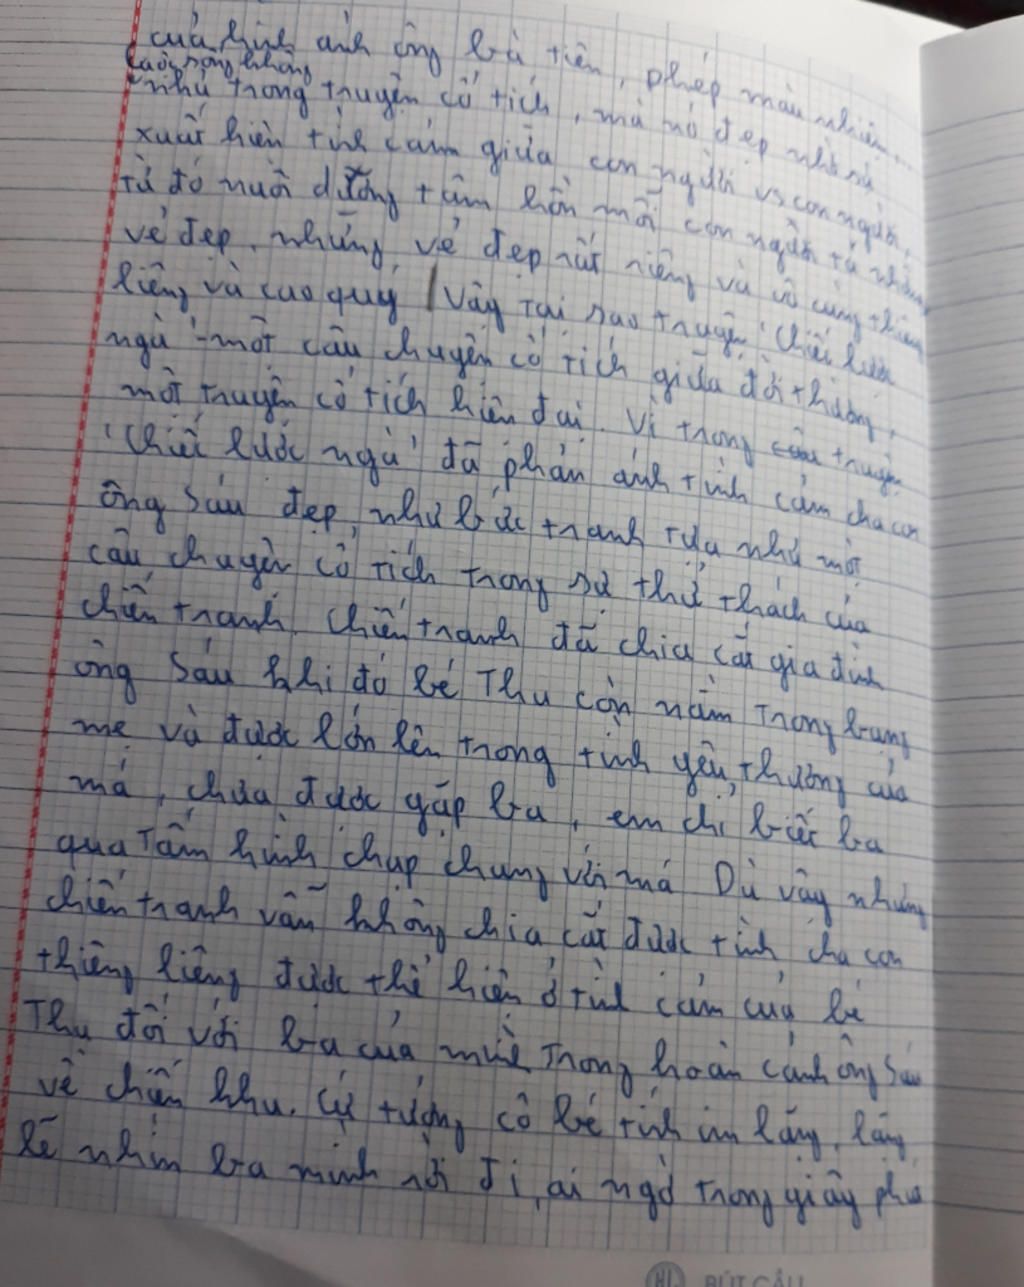 của hình ảnh ông bà tiên, phép màu nhiệm...
cuộc sống không
như trong truyện cổ tích, mà nó đẹp nhờ sự
xuất hiện tình cảm giữa con người vs con người,
từ đó nuôi dưỡng tâm hồn mỗi con người ta những
vẻ đẹp, những vẻ đẹp rất riêng và vô cùng thiêng
liêng và cao quý / Vậy tại sao truyện "Chiếc lược
ngà" - một câu chuyện cổ tích giữa đời thường,
một truyện cổ tích hiện đại. Vì trong truyện
"Chiếc lược ngà" đã phản ánh tình cảm cha con
ông Sáu đẹp, như bức tranh tựa như một
câu chuyện cổ tích trong sự thử thách của
chiến tranh. Chiến tranh đã chia cắt gia đình
ông Sáu khi đó bé Thu còn nằm trong bụng
mẹ và được lớn lên trong tình yêu thương của
má, chưa được gặp ba, em chỉ biết ba
qua tấm hình chụp chung với má Dù vậy nhưng
chiến tranh vẫn không chia cắt được tình cha con
thiêng liêng được thể hiện ở tình cảm của bé
Thu đối với ba của mình trong hoàn cảnh ông Sáu
về chiến khu. Cứ tưởng cô bé tính im lặng, lặng
lẽ nhìn ba mình rời đi, ai ngờ trong giây phút
BÚT CÂU